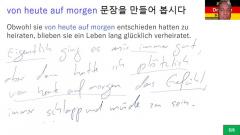 von heute auf morgen 문장을 만들어 봅시다
Obwohl sie von heute auf morgen entschieden hatten zu
heiraten, blieben sie ein Leben lang glücklich verheiratet.
Eigentlich ging es mir immer gut,
aber dann hatte ich plötzlich
von heute auf morgen das Gefühl
immer schlapp und müde zu sein.